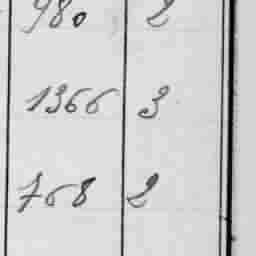 980 2
1366 3
768 2